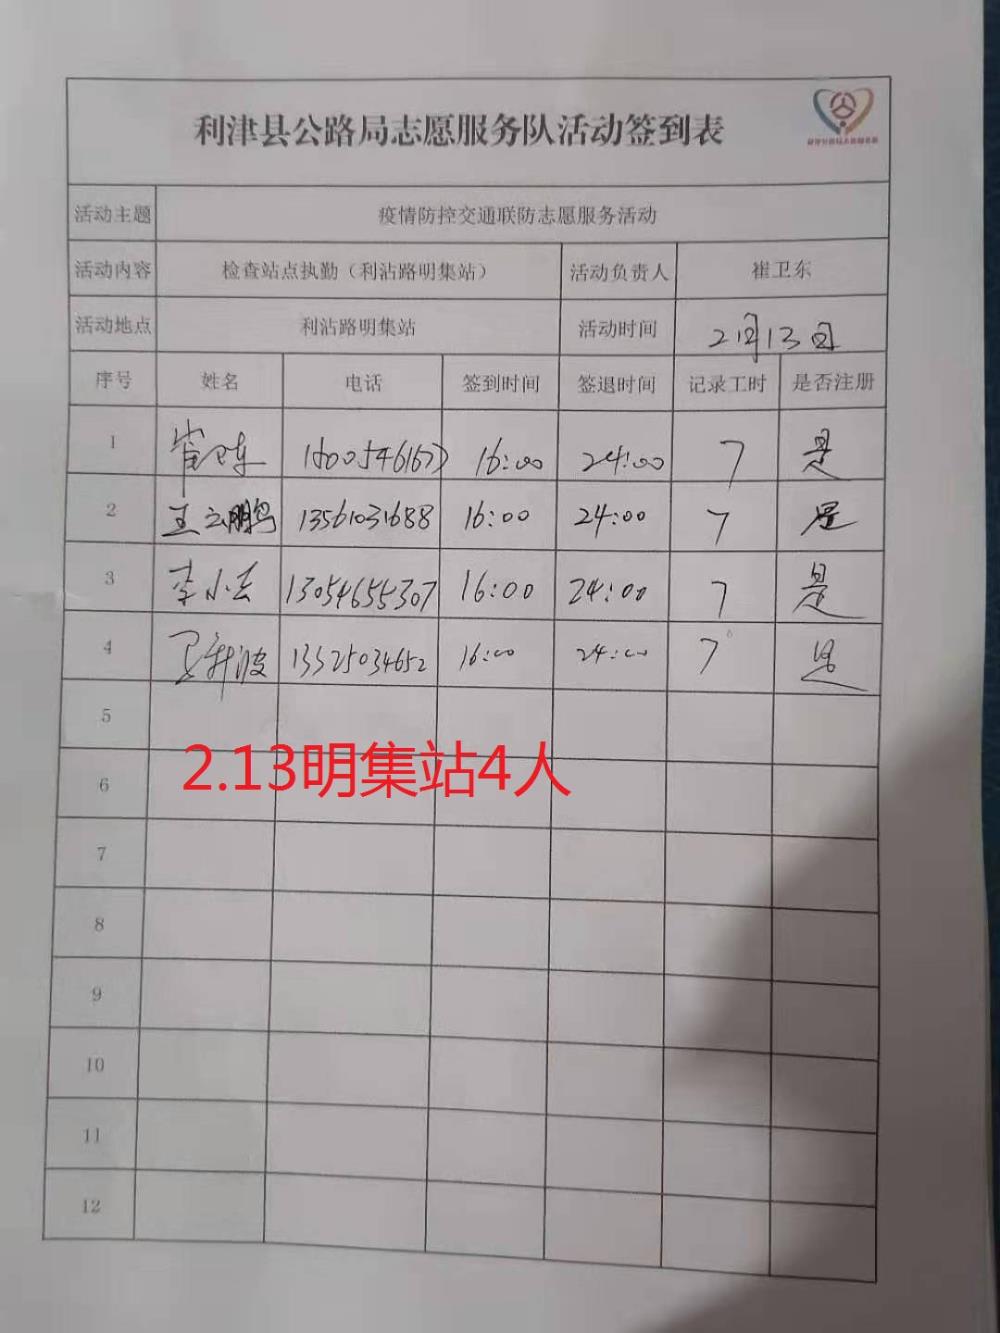 利津县公路局志愿服务队活动签到表
活动主题 疫情防控交通联防志愿服务活动
活动内容 检查站点执勤（利沾路明集站） 活动负责人 崔卫东
活动地点 利沾路明集站 活动时间 2月13日
序号 姓名 电话 签到时间 签退时间 记录工时 是否注册
1 崔卫东 16:00 24:00 7 是
2 王云鹏 13561031688 16:00 24:00 7 是
3 李小 13054655307 16:00 24:00 7 是
4 波 13325034652 16:00 24:00 7 是
5
2.13明集站4人
6
7
8
9
10
11
12